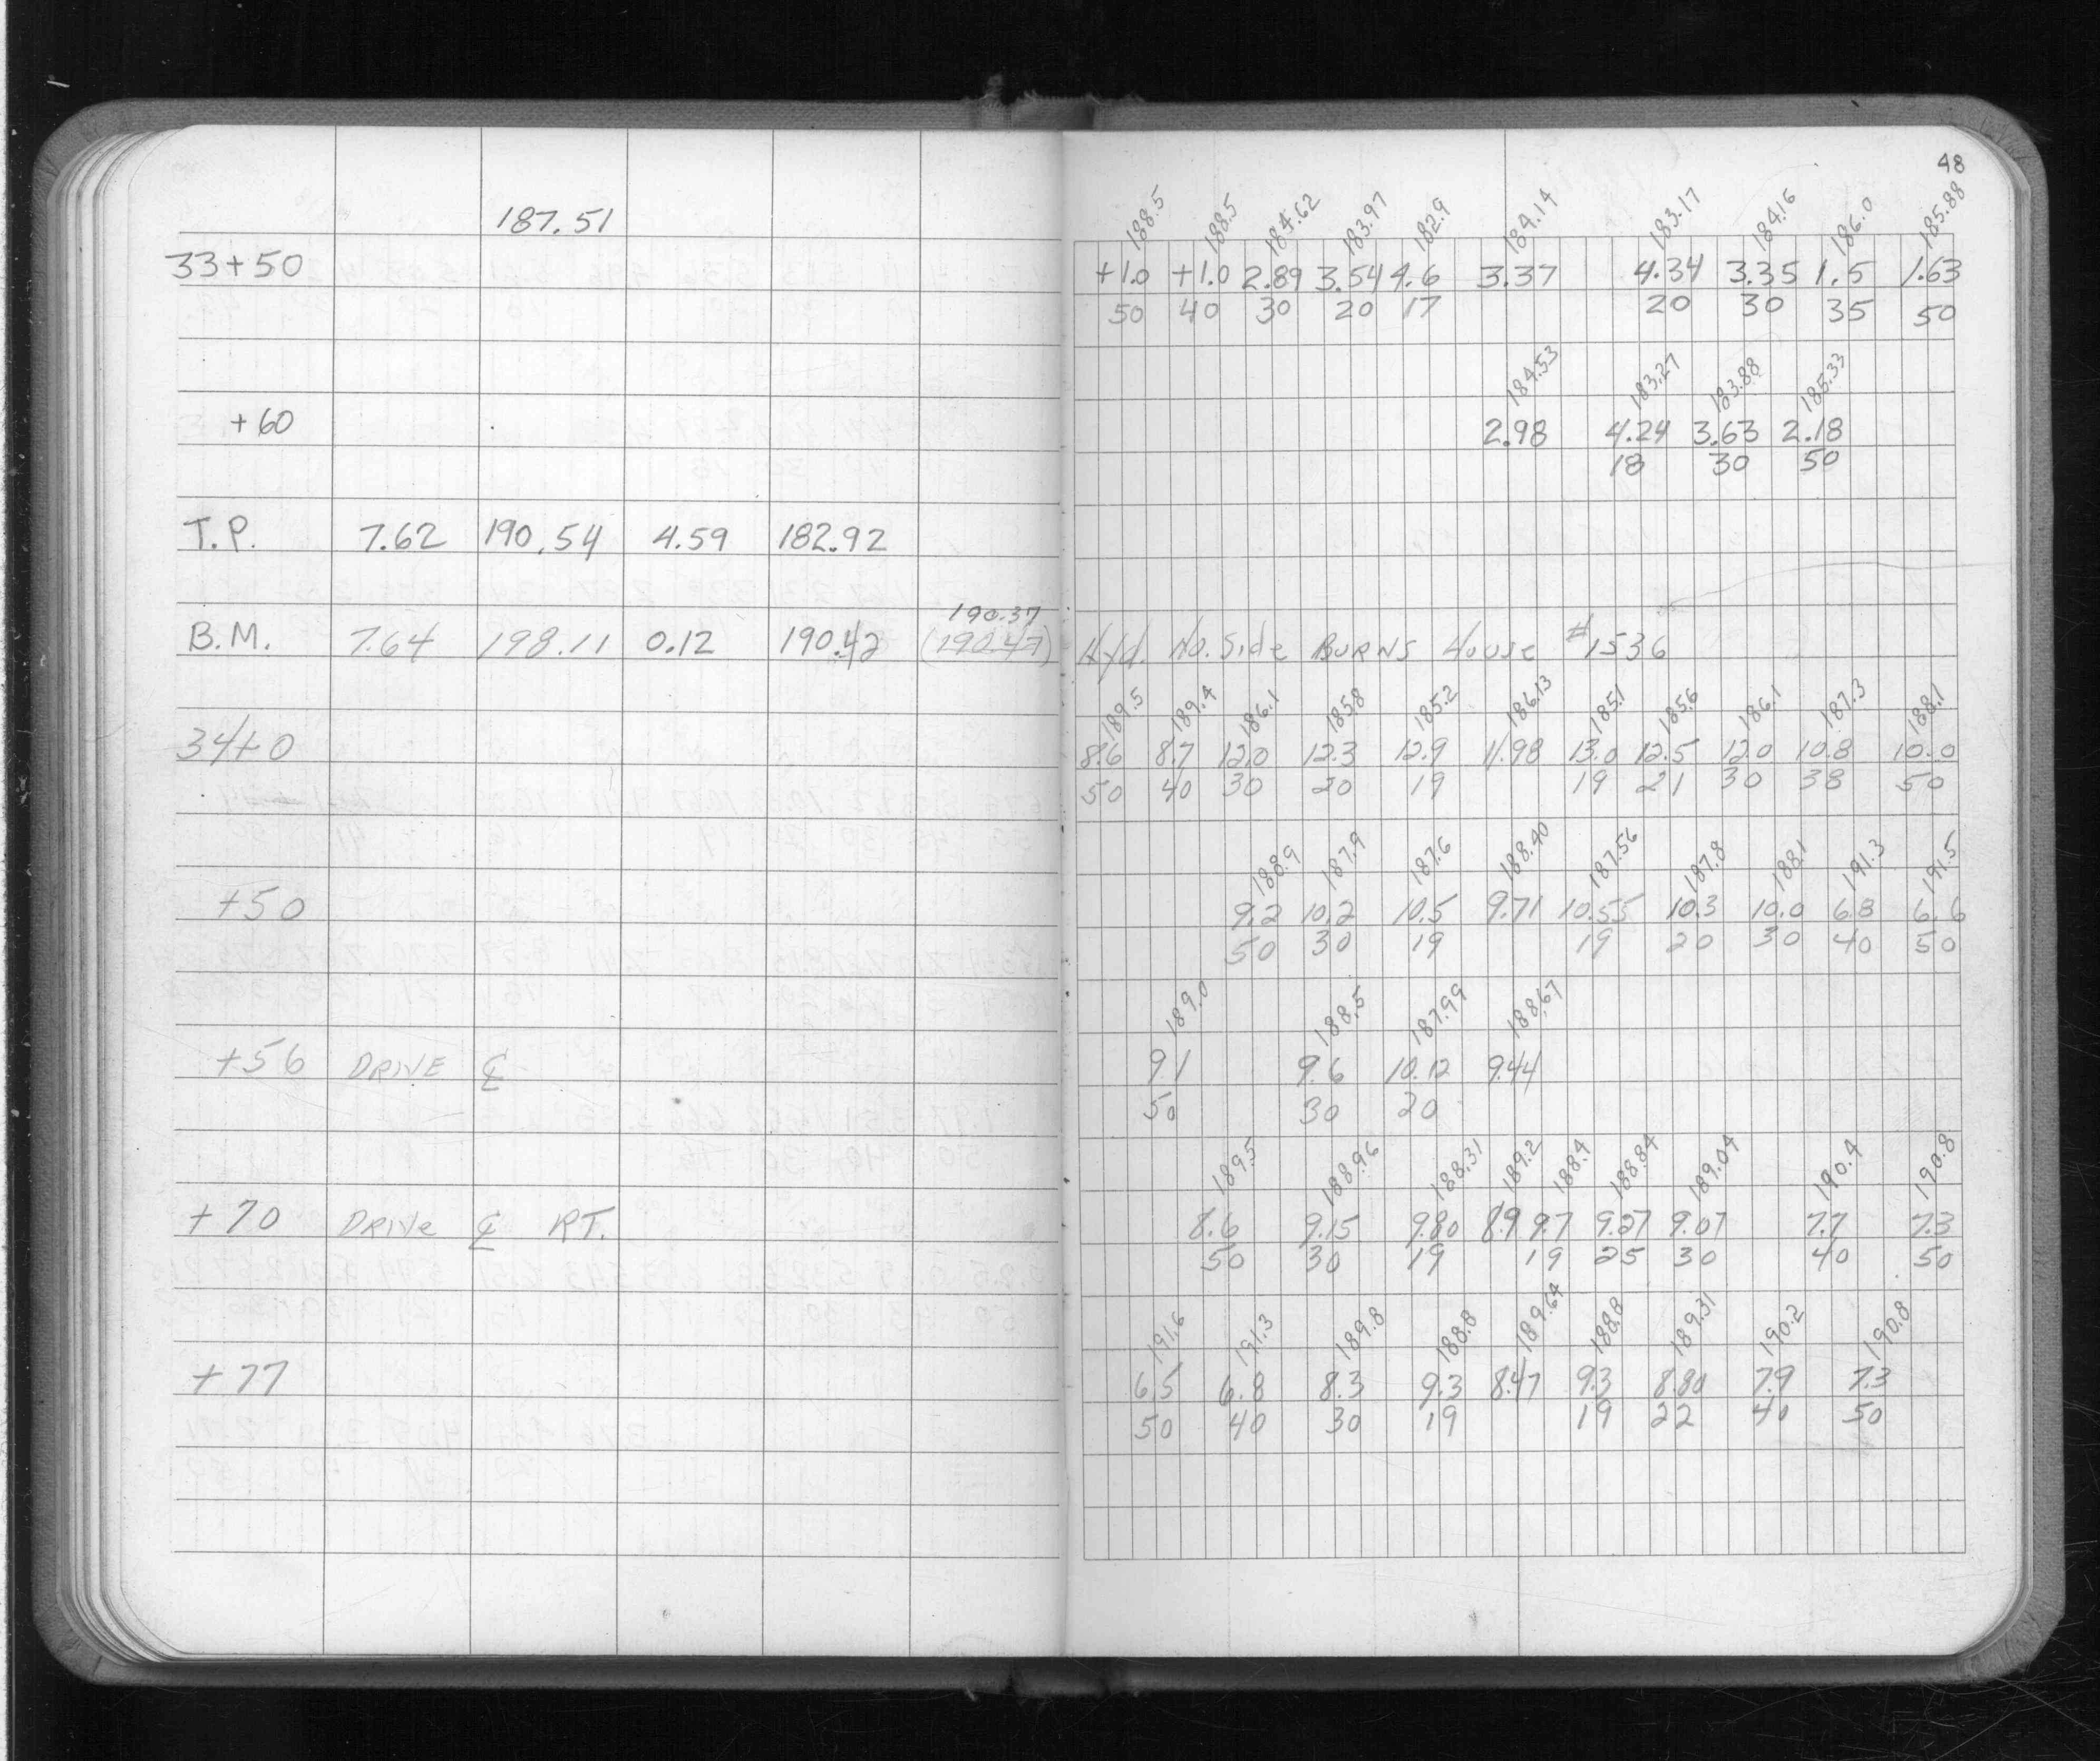 48
187.51
188.5 188.5 184.62 183.97 182.9 184.14 183.17 184.16 186.0 185.88
33+50 +1.0 +1.0 2.89 3.54 4.6 3.37 4.34 3.35 1.5 1.63
50 40 30 20 17 20 30 35 50
184.53 183.27 183.88 185.33
+60 2.98 4.24 3.63 2.18
18 30 50
T.P. 7.62 190.54 4.59 182.92
190.37
B.M. 7.64 198.11 0.12 190.42 (190.47) Hyd. No. Side BURNS House #1536
189.5 189.4 186.1 185.8 185.2 186.13 185.1 185.6 186.1 187.3 188.1
34+0 8.6 8.7 12.0 12.3 12.9 11.98 13.0 12.5 12.0 10.8 10.0
50 40 30 20 19 19 21 30 38 50
188.9 187.9 187.6 188.40 187.56 187.8 188.1 191.3 191.5
+50 9.2 10.2 10.5 9.71 10.55 10.3 10.0 6.8 6.6
50 30 19 19 20 30 40 50
189.0 188.5 187.99 188.67
+56 DRIVE ℄ 9.1 9.6 10.12 9.44
50 30 20
189.5 188.96 188.31 189.2 188.4 188.84 189.04 190.4 190.8
+70 DRIVE ℄ RT. 8.6 9.15 9.80 8.9 9.7 9.27 9.07 7.7 7.3
50 30 19 19 25 30 40 50
191.6 191.3 189.8 188.8 189.64 188.8 189.31 190.2 190.8
+77 6.5 6.8 8.3 9.3 8.47 9.3 8.80 7.9 7.3
50 40 30 19 19 22 40 50